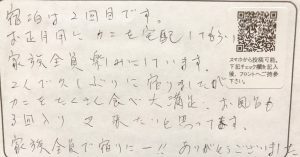 宿泊は2回目です。
お正月用に、カニを宅配してもらい
家族全員楽しみにしています。
2人で久しぶりに宿りましたが
カニをたくさん食べ大満足、お風呂も
3回入り 又 来たいと思ってます。
家族全員で宿りにー!! ありがとうございました
スマホから投稿可能。
下記チェック欄を記入
後、フロントへご持参
下さい。